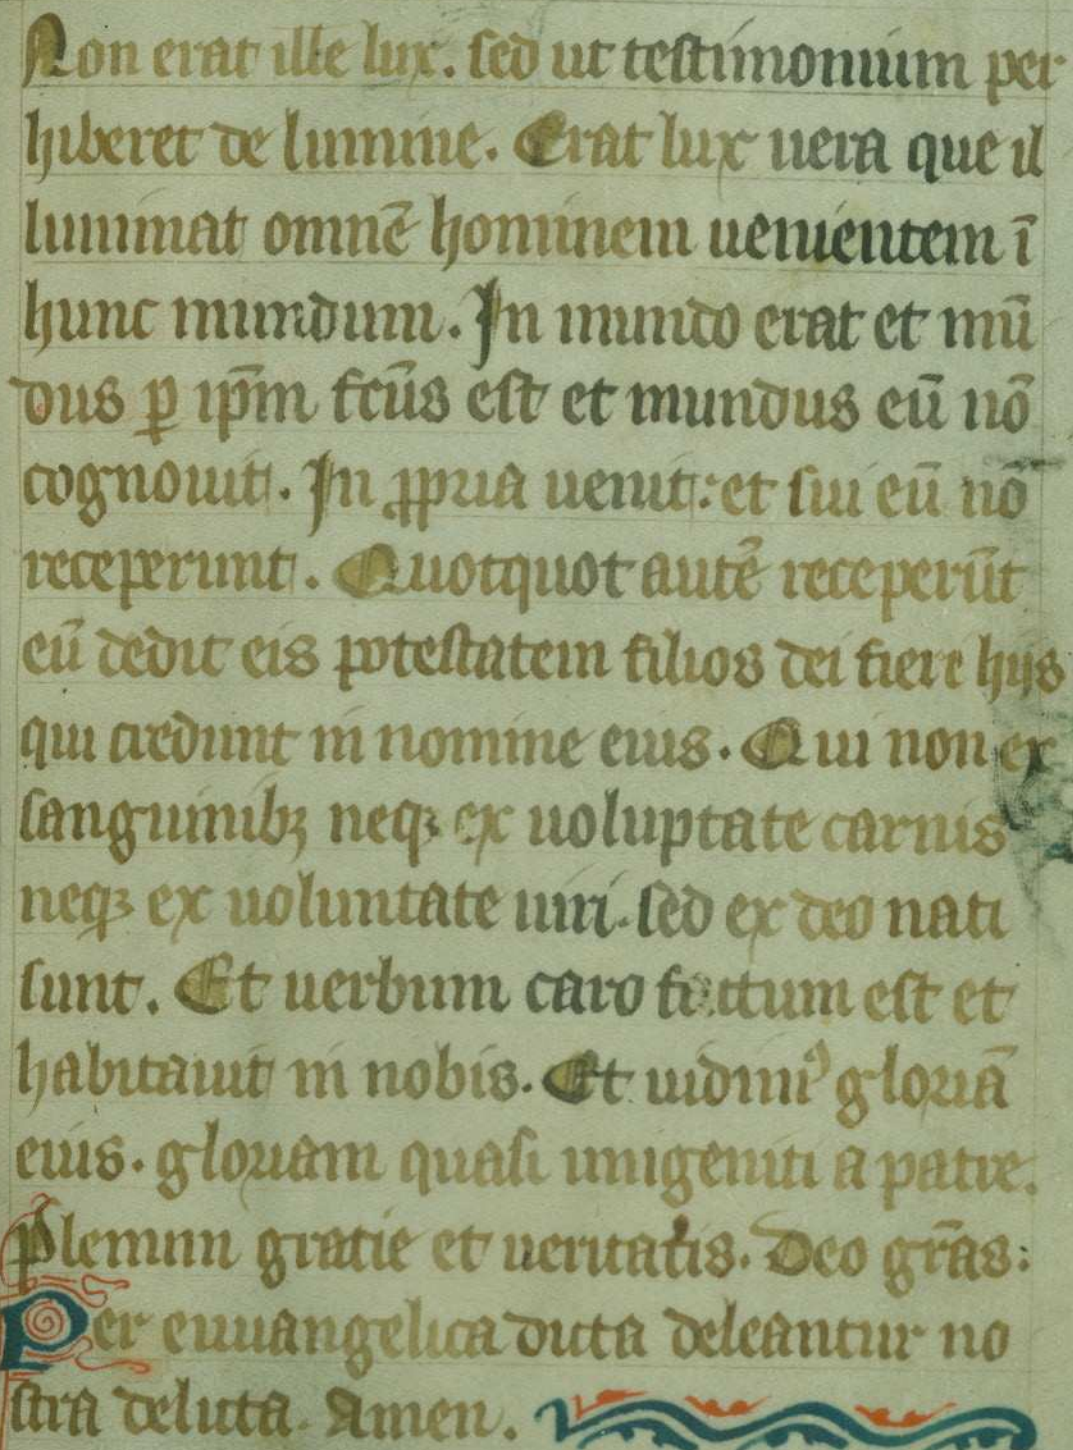 Non erat ille lux. sed ut testimonium per
hiberet de lumine. Erat lux uera que il
luminat omnē hominem uenientem ī
hunc mundum. In mundo erat et mū
dus ꝑ ip̄m fcūs est et mundus eū nō
cognouit. In ꝓpria uenit: et sui eū nō
receperunt. Quotquot autē receperūt
eū dedit eis potestatem filios dei fiere hijs
qui credunt in nomine eius. Qui non ex
sanguinibꝫ neqꝫ ex uoluptate carnis
neqꝫ ex uoluntate uiri. sed ex deo nati
sunt. Et uerbum caro factum est et
habitauit in nobis. Et uidimꝰ gloriā
eius. gloriam quasi unigeniti a patre.
Plenum gratie et ueritatis. Deo gr̄as:
Per euuangelica dicta deleantur no
stra delicta. Amen.